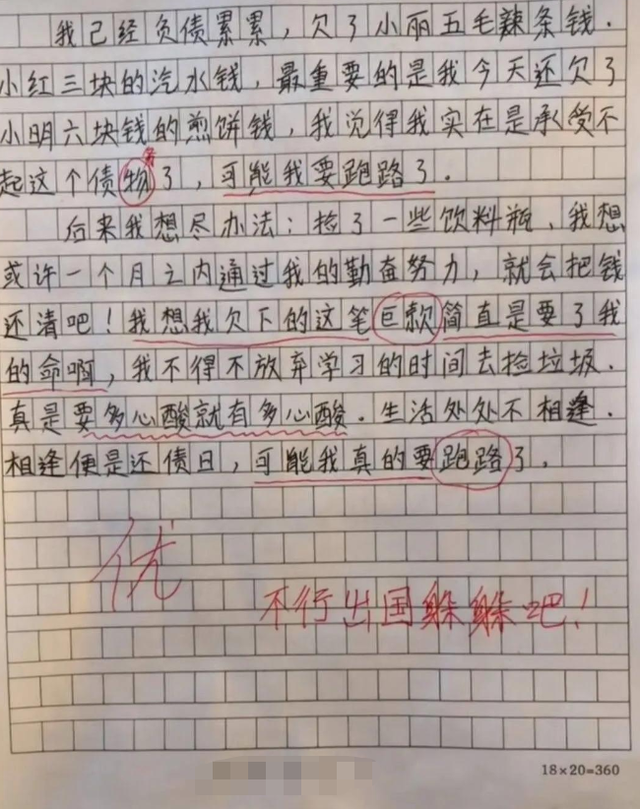 我已经负债累累，欠了小丽五毛辣条钱．
小红三块的汽水钱，最重要的是我今天还欠了
小明六块钱的煎饼钱，我觉得我实在是承受不
务
起这个债物了，可能我要跑路了．
后来我想尽办法：捡了一些饮料瓶、我想
或许一个月之内通过我的勤奋努力，就会把钱
还清吧！我想我欠下的这笔巨款简直是要了我
的命啊，我不得不放弃学习的时间去捡垃圾．
真是要多心酸就有多心酸．生活处处不相逢．
相逢便是还债日，可能我真的要跑路了．
优
不行出国躲躲吧！
18×20=360